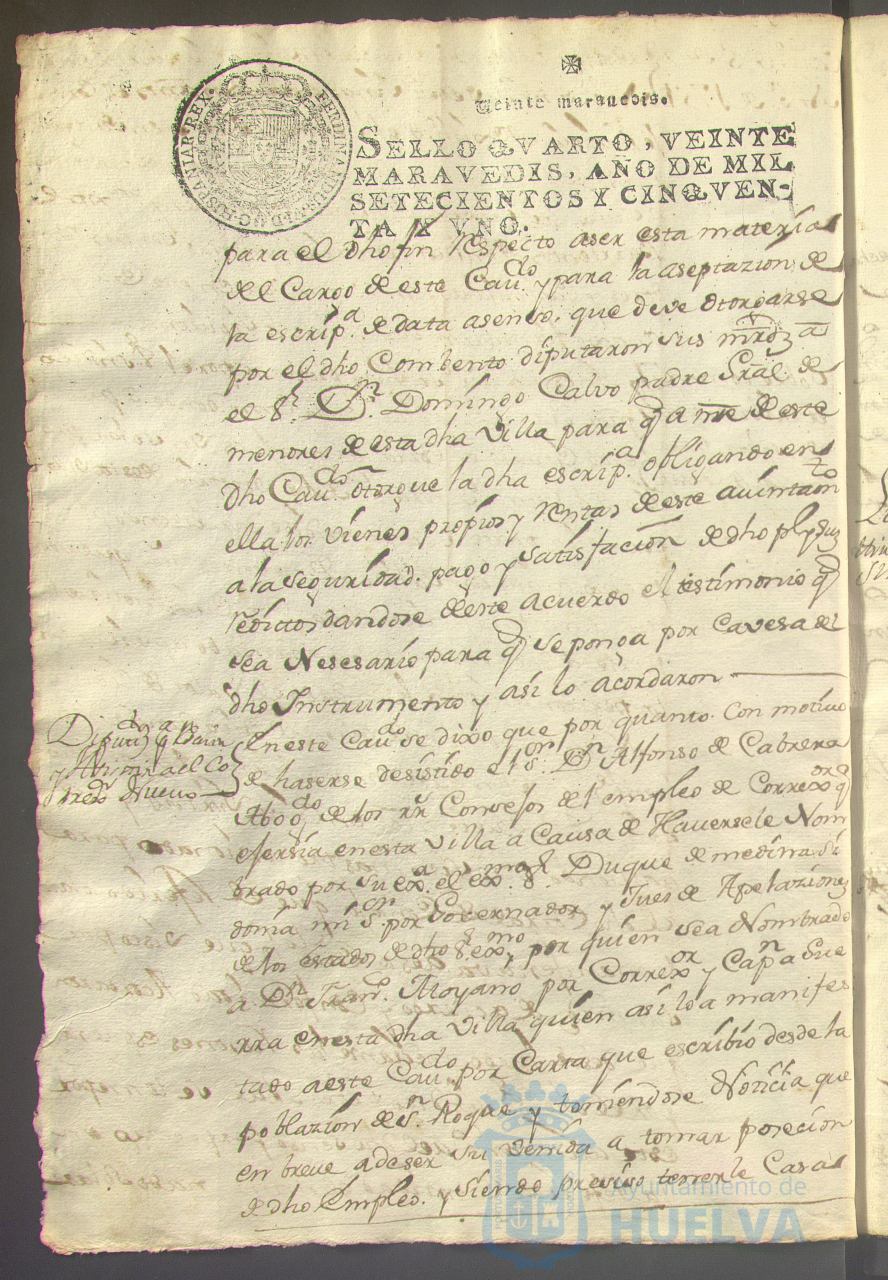 FERDINANDUS·VI·D·G·HISPANIAR·REX·
Veinte marauedis.
SELLO QVARTO, VEINTE
MARAVEDIS, AÑO DE MIL
SETECIENTOS Y CINQVEN-
TA Y VNO.
para el dho fin Respecto aser esta materia
del Cargo de este Cavdo y para la aseptazion de
la escripa. de data asenso. que deve otorgarse
por el dho Combento diputaron sus mrdz a
el Sr. Dn. Domingo Calvo padre Gral. de
menores de esta dha Villa para q a nre de este
dho Cavdo otorgue la dha escripa. obligando en
ella los vienes propios y Rentas de este auintamto
a la seguridad. pago y satisfacion de dho pl y sus
reditos dandose de este acuerdo el testimonio q
sea Nesesario para q se ponga por Cavesa del
dho Instrumento y asi lo acordaron
Diputdos pa
y del Co
rredr Nuevo
En este Cavdo se dixo que por quanto. Con motivo
de haserse desistido el Sr. Dn Alfonso de Cabrera
Abogdo de los rr Consejos del empleo de Correxor q
exersia en esta villa a Causa de Haversele Nom
brado por su exa. el exmo Sr. Duque de medina Si
donia mi Sr. por Governador y Jues de Apelaziones
de los estados de dho Sr. exmo, por quien sea Nombrado
a Dn Franco. Moyano por Correxor y Capn a Gue
rra en esta dha Villa quien asi lo a manifes
tado a este Cavdo por Carta que escribio desde la
poblazion de Sn. Roque y teniendose Noticia que
en breve a de ser su venida a tomar posecion
de dho Empleo. y siendo presiso tenerle Casa
Ayuntamiento de
HUELVA